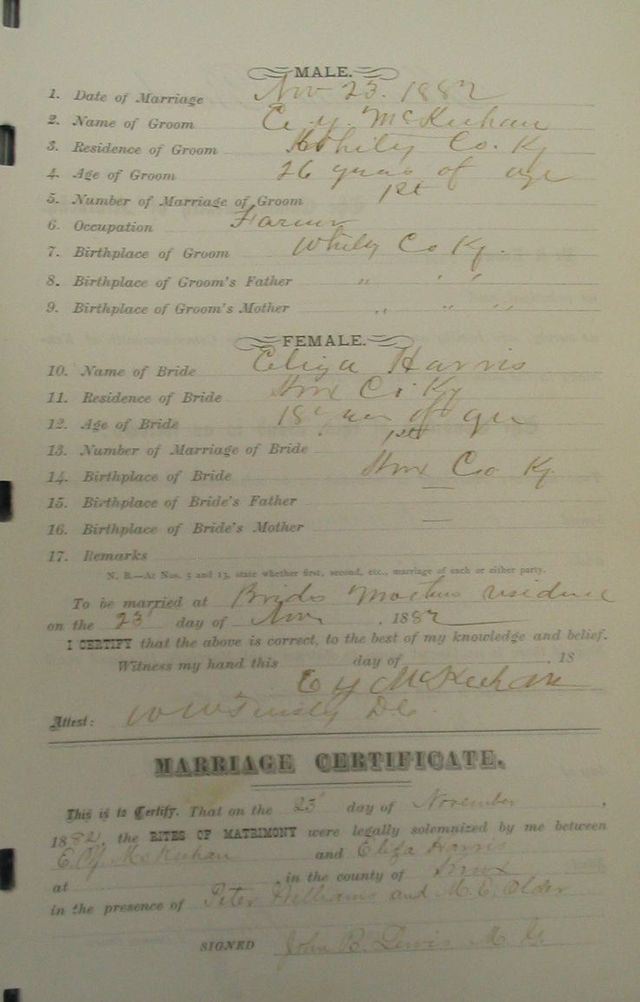 MALE.
1. Date of Marriage Nov 23. 1882
2. Name of Groom E. Y. McKeehan
3. Residence of Groom Whitly Co. Ky
4. Age of Groom 26 years of age
5. Number of Marriage of Groom 1st
6. Occupation Farmer
7. Birthplace of Groom Whitly Co Ky.
8. Birthplace of Groom's Father " " "
9. Birthplace of Groom's Mother " " "
FEMALE.
10. Name of Bride Eliza Harris
11. Residence of Bride Knox Co Ky
12. Age of Bride 18 years of age
13. Number of Marriage of Bride 1st
14. Birthplace of Bride Knox Co Ky
15. Birthplace of Bride's Father —
16. Birthplace of Bride's Mother —
17. Remarks
N. B.—At Nos. 5 and 13, state whether first, second, etc., marriage of each or either party.
To be married at Brides Mothers residence
on the 23 day of Nov, 1882
I CERTIFY that the above is correct, to the best of my knowledge and belief.
Witness my hand this day of , 18
E Y McKeehan
Attest: W W Tinsley D.C.
MARRIAGE CERTIFICATE.
This is to Certify, That on the 23 day of November,
1882, the RITES OF MATRIMONY were legally solemnized by me between
E. Y. McKeehan and Eliza Harris
at , in the county of Knox
in the presence of Peter Williams and M. E. Older
SIGNED John B. Lewis M. G.